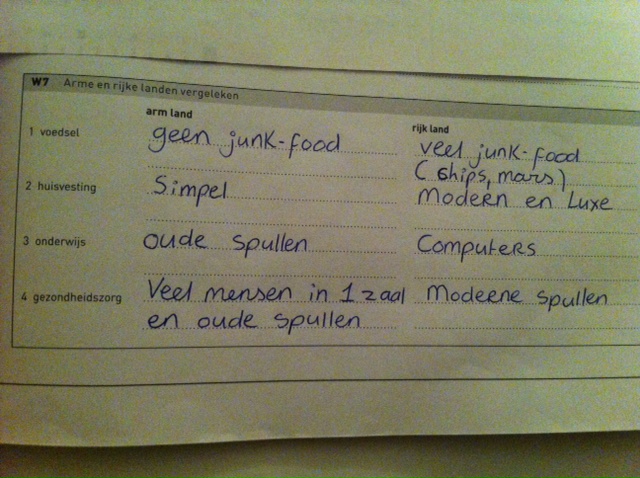 W7 Arme en rijke landen vergeleken
arm land
rijk land
1 voedsel
geen junk-food
veel junk-food
( Chips, mars)
2 huisvesting
Simpel
Modern en Luxe
3 onderwijs
oude spullen
Computers
4 gezondheidszorg
Veel mensen in 1 zaal
en oude spullen
Moderne spullen